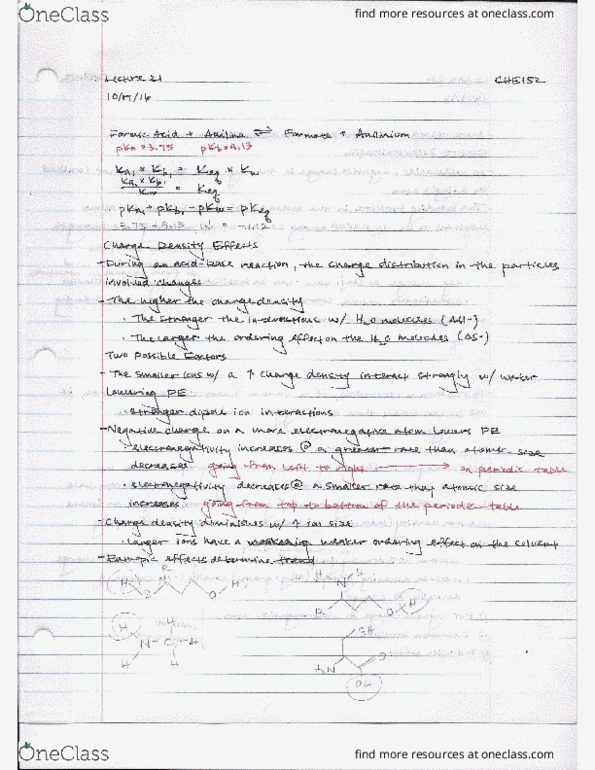 OneClass
find more resources at oneclass.com
Lecture 21
CHE152
Formic Acid + Aniline ⇌ Formate + Anilinium
pKa = 3.75 pKb = 9.13
Ka₁ × Kb₁ = Keq × Kw
Ka₁ × Kb₁ / Kw = Keq
pKa₁ + pKb₁ - pKw = pKeq
3.75 + 9.13 - 14 = -1.12
Charge Density Effects
- During an acid-base reaction, the charge distribution in the particles
involved changes
- The higher the charge density
• The stronger the interactions w/ H₂O molecules (ΔH-)
• The larger the ordering effect on the H₂O molecules (ΔS-)
Two Possible Factors
- The smaller ions w/ a ↑ charge density interact strongly w/ water
lowering PE
• stronger dipole ion interactions
- Negative charge on a more electronegative atom lowers PE
• electronegativity increases @ a greater rate than atomic size
decreases going from left to right → on periodic table
• electronegativity decreases @ a smaller rate than atomic size
increases going from top to bottom of the periodic table
- Charge density diminishes w/ ↑ ion size
• Larger ions have a weaker ordering effect on the solvent
- effects determine trend
H
S
R
O
H
N
H
R
O
H
H
N
C
H
H
SH
H₂N
O
OH
OneClass
find more resources at oneclass.com